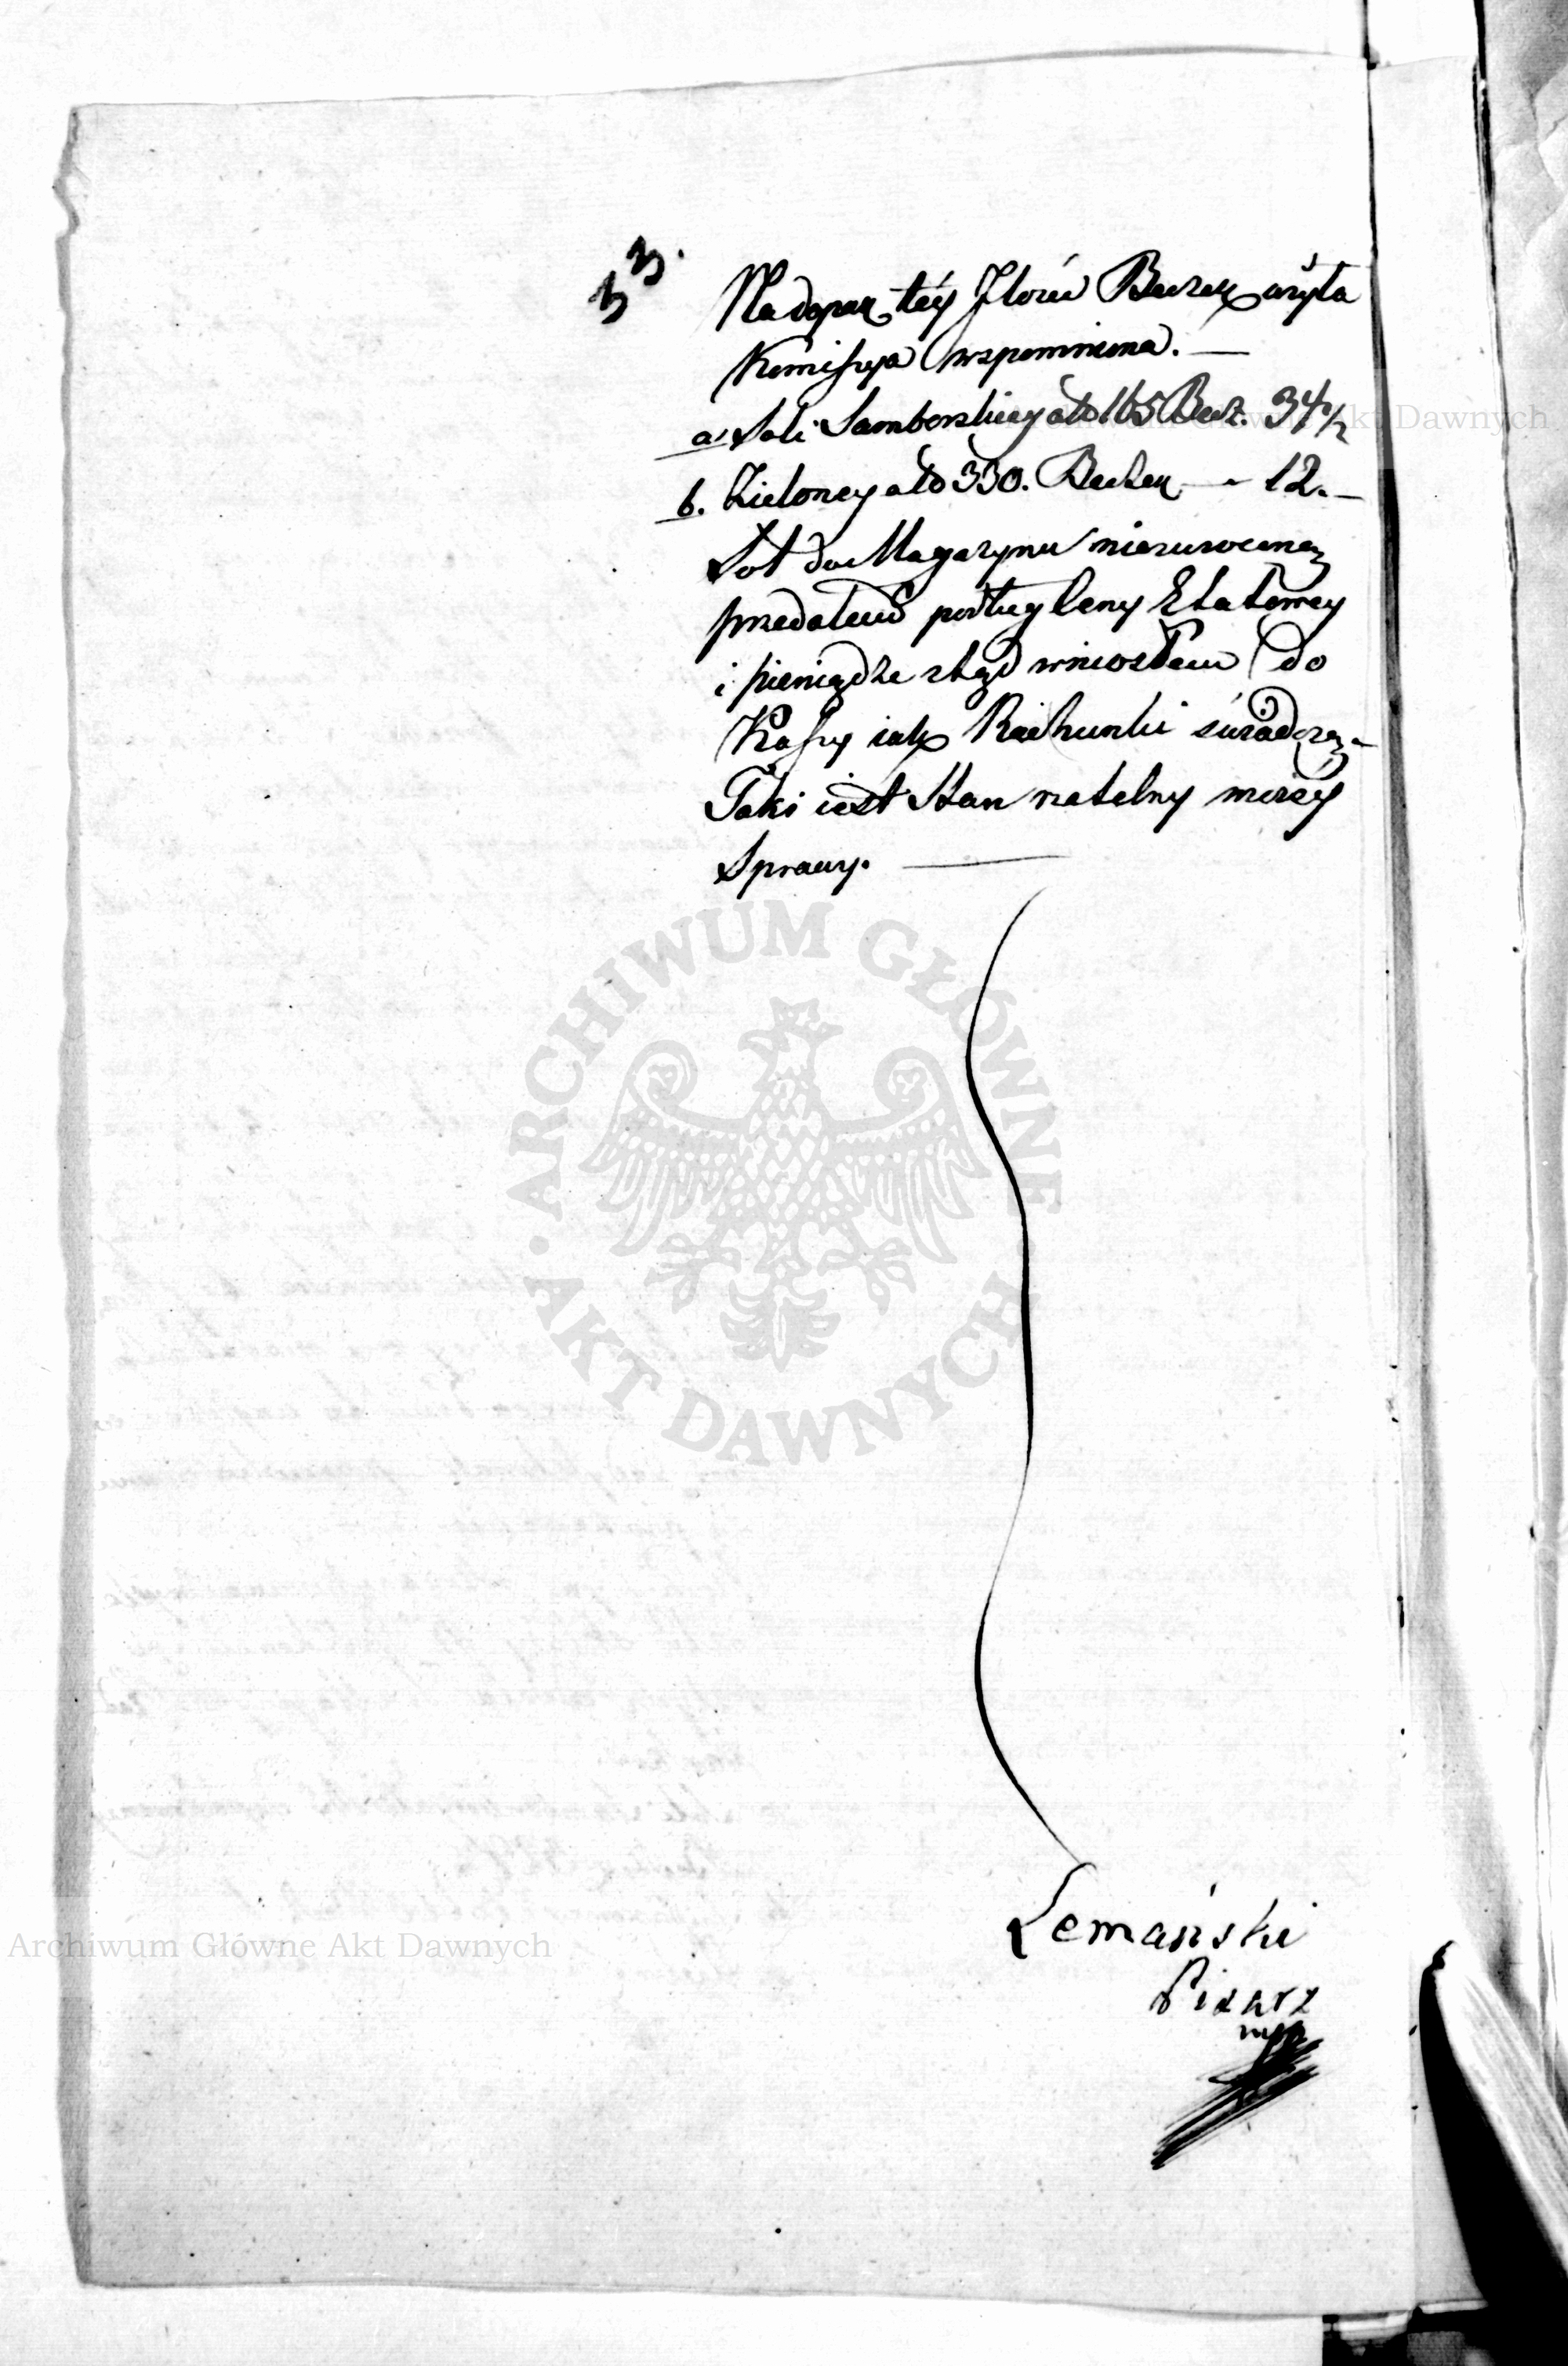 33.
Na dopeł téy Ilości Beczek użyła
Kommissya wspomniona. —
a. Soli Samborskiey ało 165 Becz. 34 1/2
b. Zieloney ało 330. Beczek — 12. —
Sol do Magazynu niezwroconą
przedałem podług Ceny Etatowey
i pieniądze ztąd wniosłem do
Kassy iak Rachunki świadczą. —
Taki iest Stan rzetelny moiéy
Sprawy. —
Lemański
Pisarz
mp
ARCHIWUM GŁÓWNE
AKT DAWNYCH
Archiwum Główne Akt Dawnych
Archiwum Główne Akt Dawnych